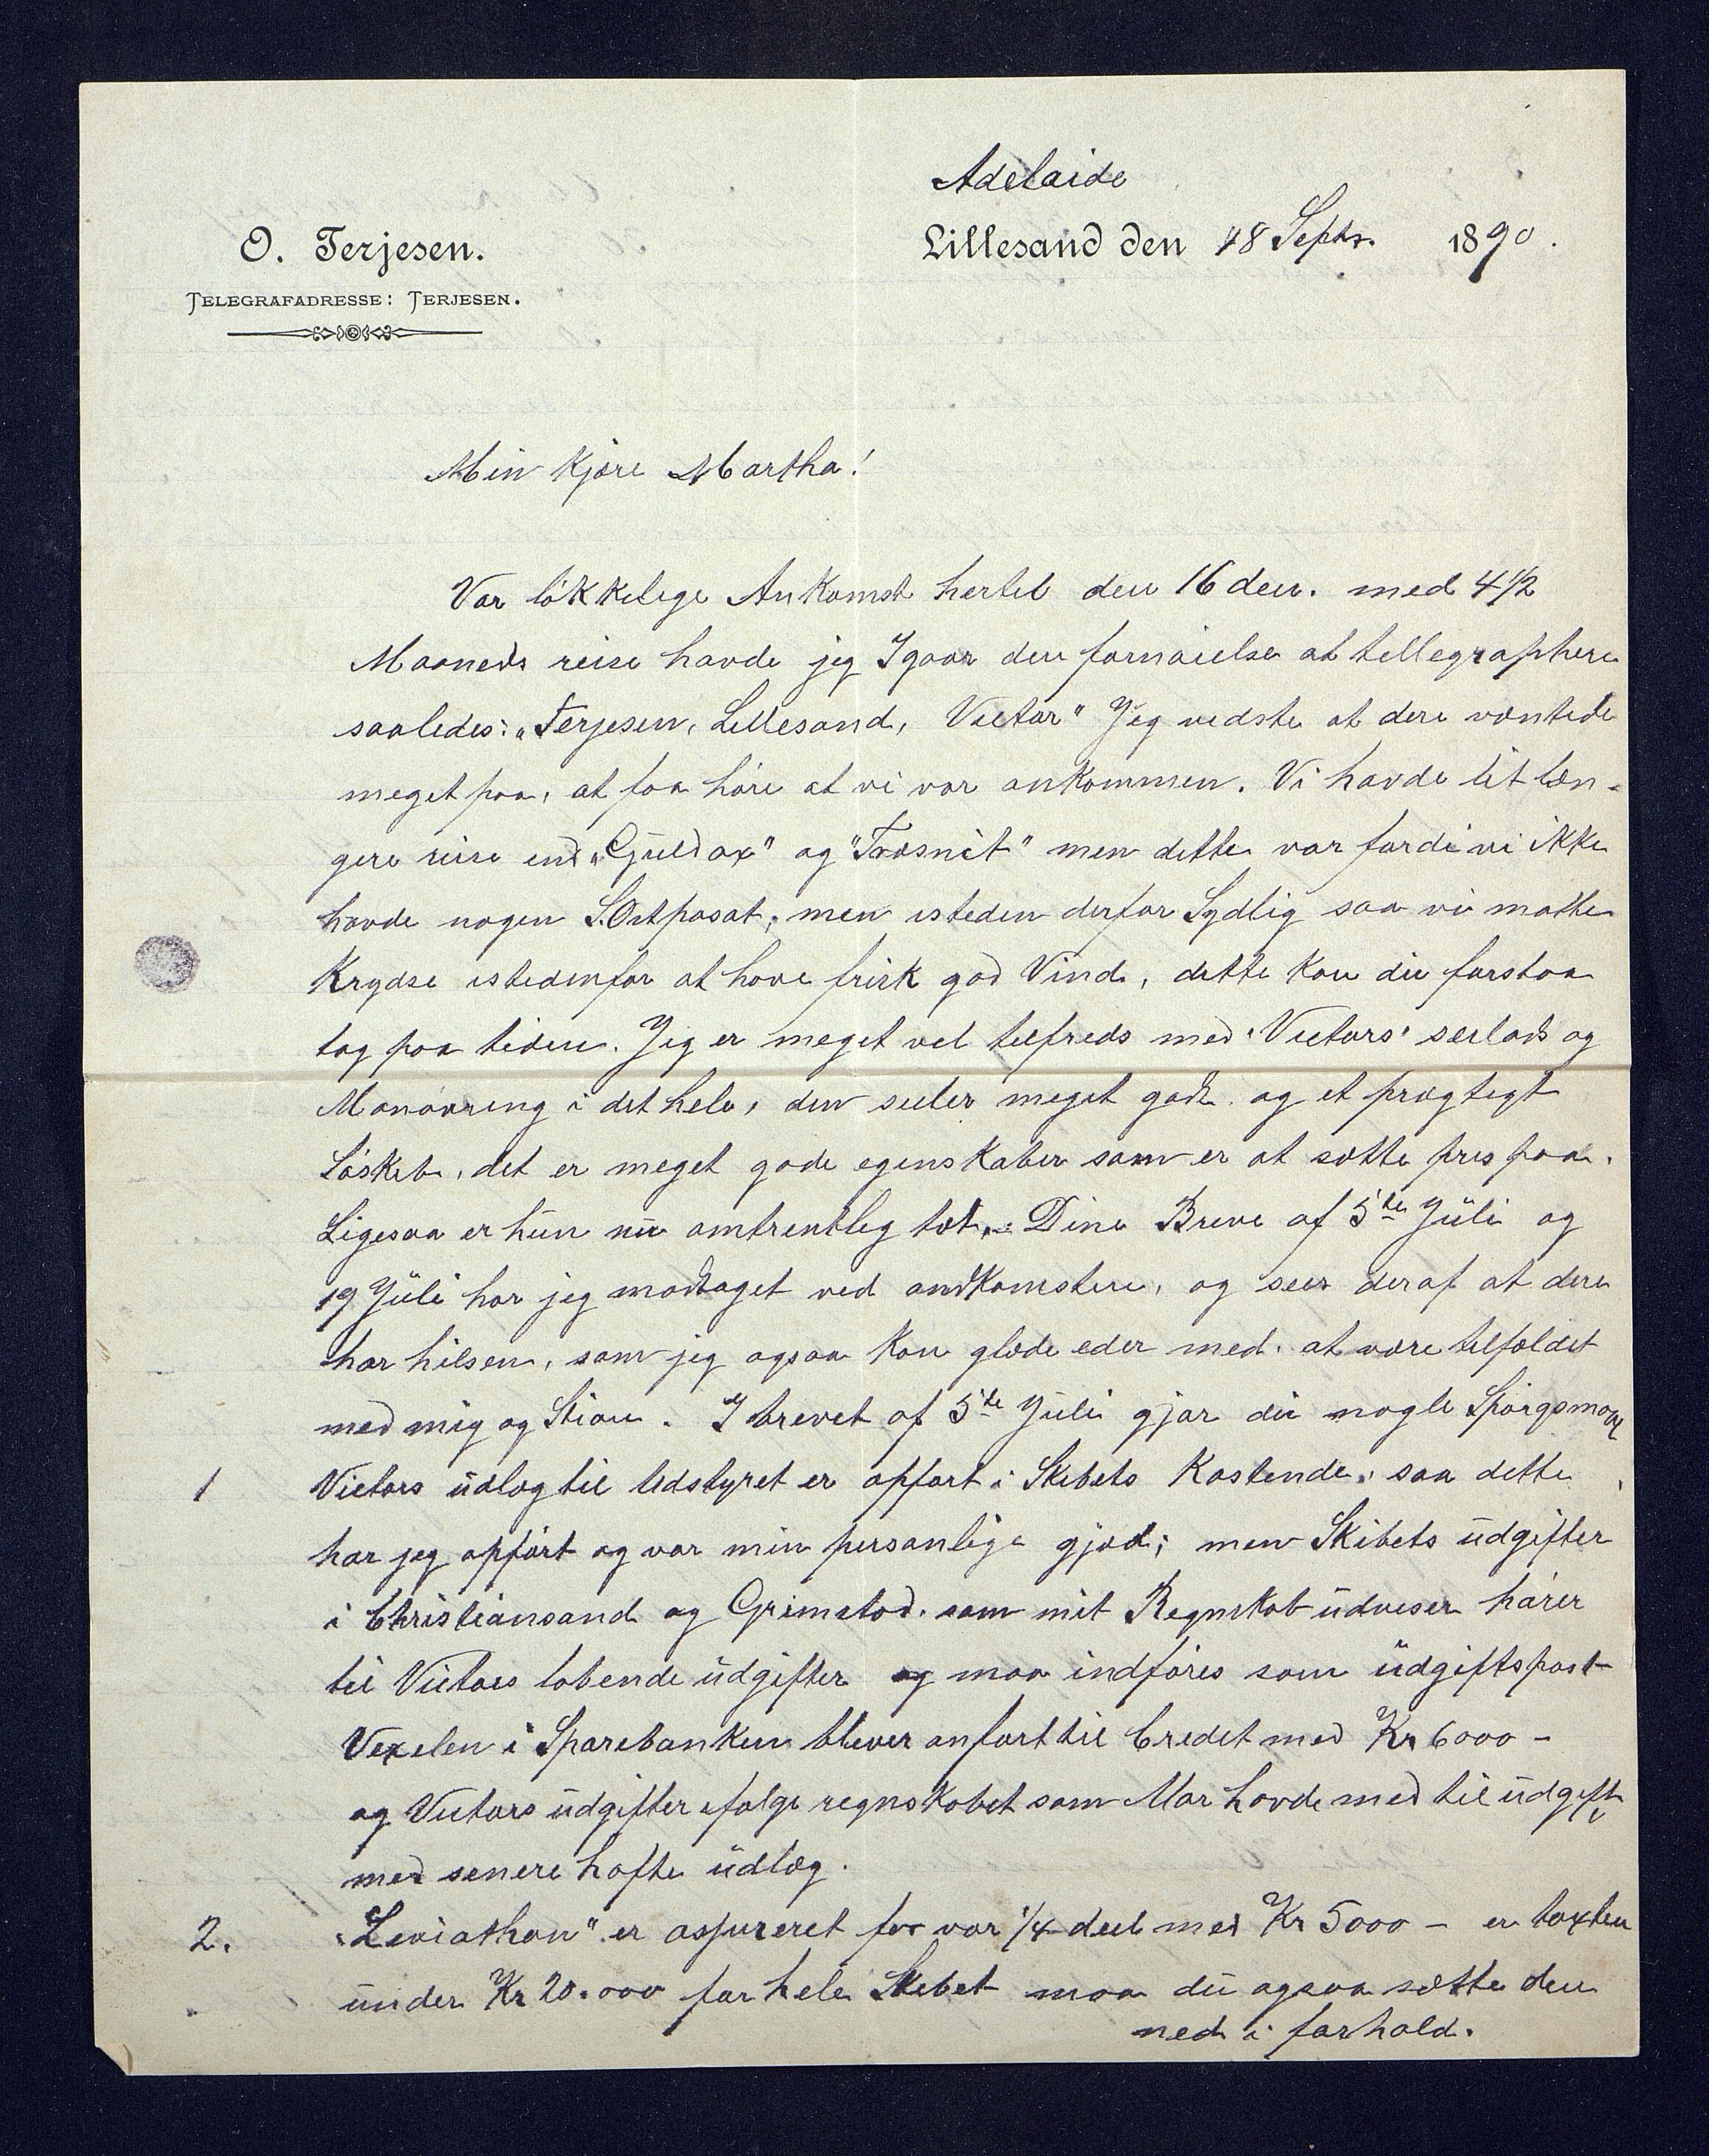 Adelaide
O. Terjesen.
Lillesand den 18 Septr. 1890.
TELEGRAFADRESSE: TERJESEN.
Min Kjære Martha!
Vor lökkelige Ankomst hertil den 16 den. med 4 1/2
Maaneds reise havde jeg Igaar den fornöielse at tellegraphere
saaledes: "Terjesen, Lillesand, Victor" Jeg vidste at dere væntede
meget paa, at faa höre at vi var ankommen. Vi havde lit læn-
gere reise end "Guldax" og "Tvosnit" men dette var fordi vi ikke
havde nogen S.Ostpasat; men isteden derfor Sydlig saa vi motte
Krydse istedenfor at have frisk god Vind, dette kan du forstaa
tog paa tiden. Jeg er meget vel tilfreds med "Victors" seilads og
Manövring i det hele, den seiler meget godt og et prægtigt
Söskib, det er meget gode egenskaber som er at sætte pris paa.
Ligesaa er hun nu omtrentlig tæt. Dine Breve af 5te Juli og
19 Juli har jeg modtaget ved andkomsten, og seer deraf at dere
har hilsen, som jeg ogsaa kan glæde eder med. at være tilfældet
med mig og Stian. I brevet af 5te Juli gjør du nogle Spörgsmaal
1 Victors udlæg til Udstyret er opfört i Skibets Kostende, saa dette
har jeg opfört og var min personlige gjæd; men Skibets udgifter
i Christiansand og Grimstad. som mit Regnskab udviser hörer
til Victors löbende udgifter og maa indföres som udgiftspost
Vexelen i Sparebanken bliver anfört til Credit med Kr 6000 -
og Victors udgifter ifølge regnskabet som Mor havde med til udgift,
med senere hafte udlæg.
2. "Leviathan" er assureret for vor 1/4 deel med Kr 5000 - er taxten
under Kr 20.000 for hele Skibet maa du ogsaa sætte den
ned i forhold.